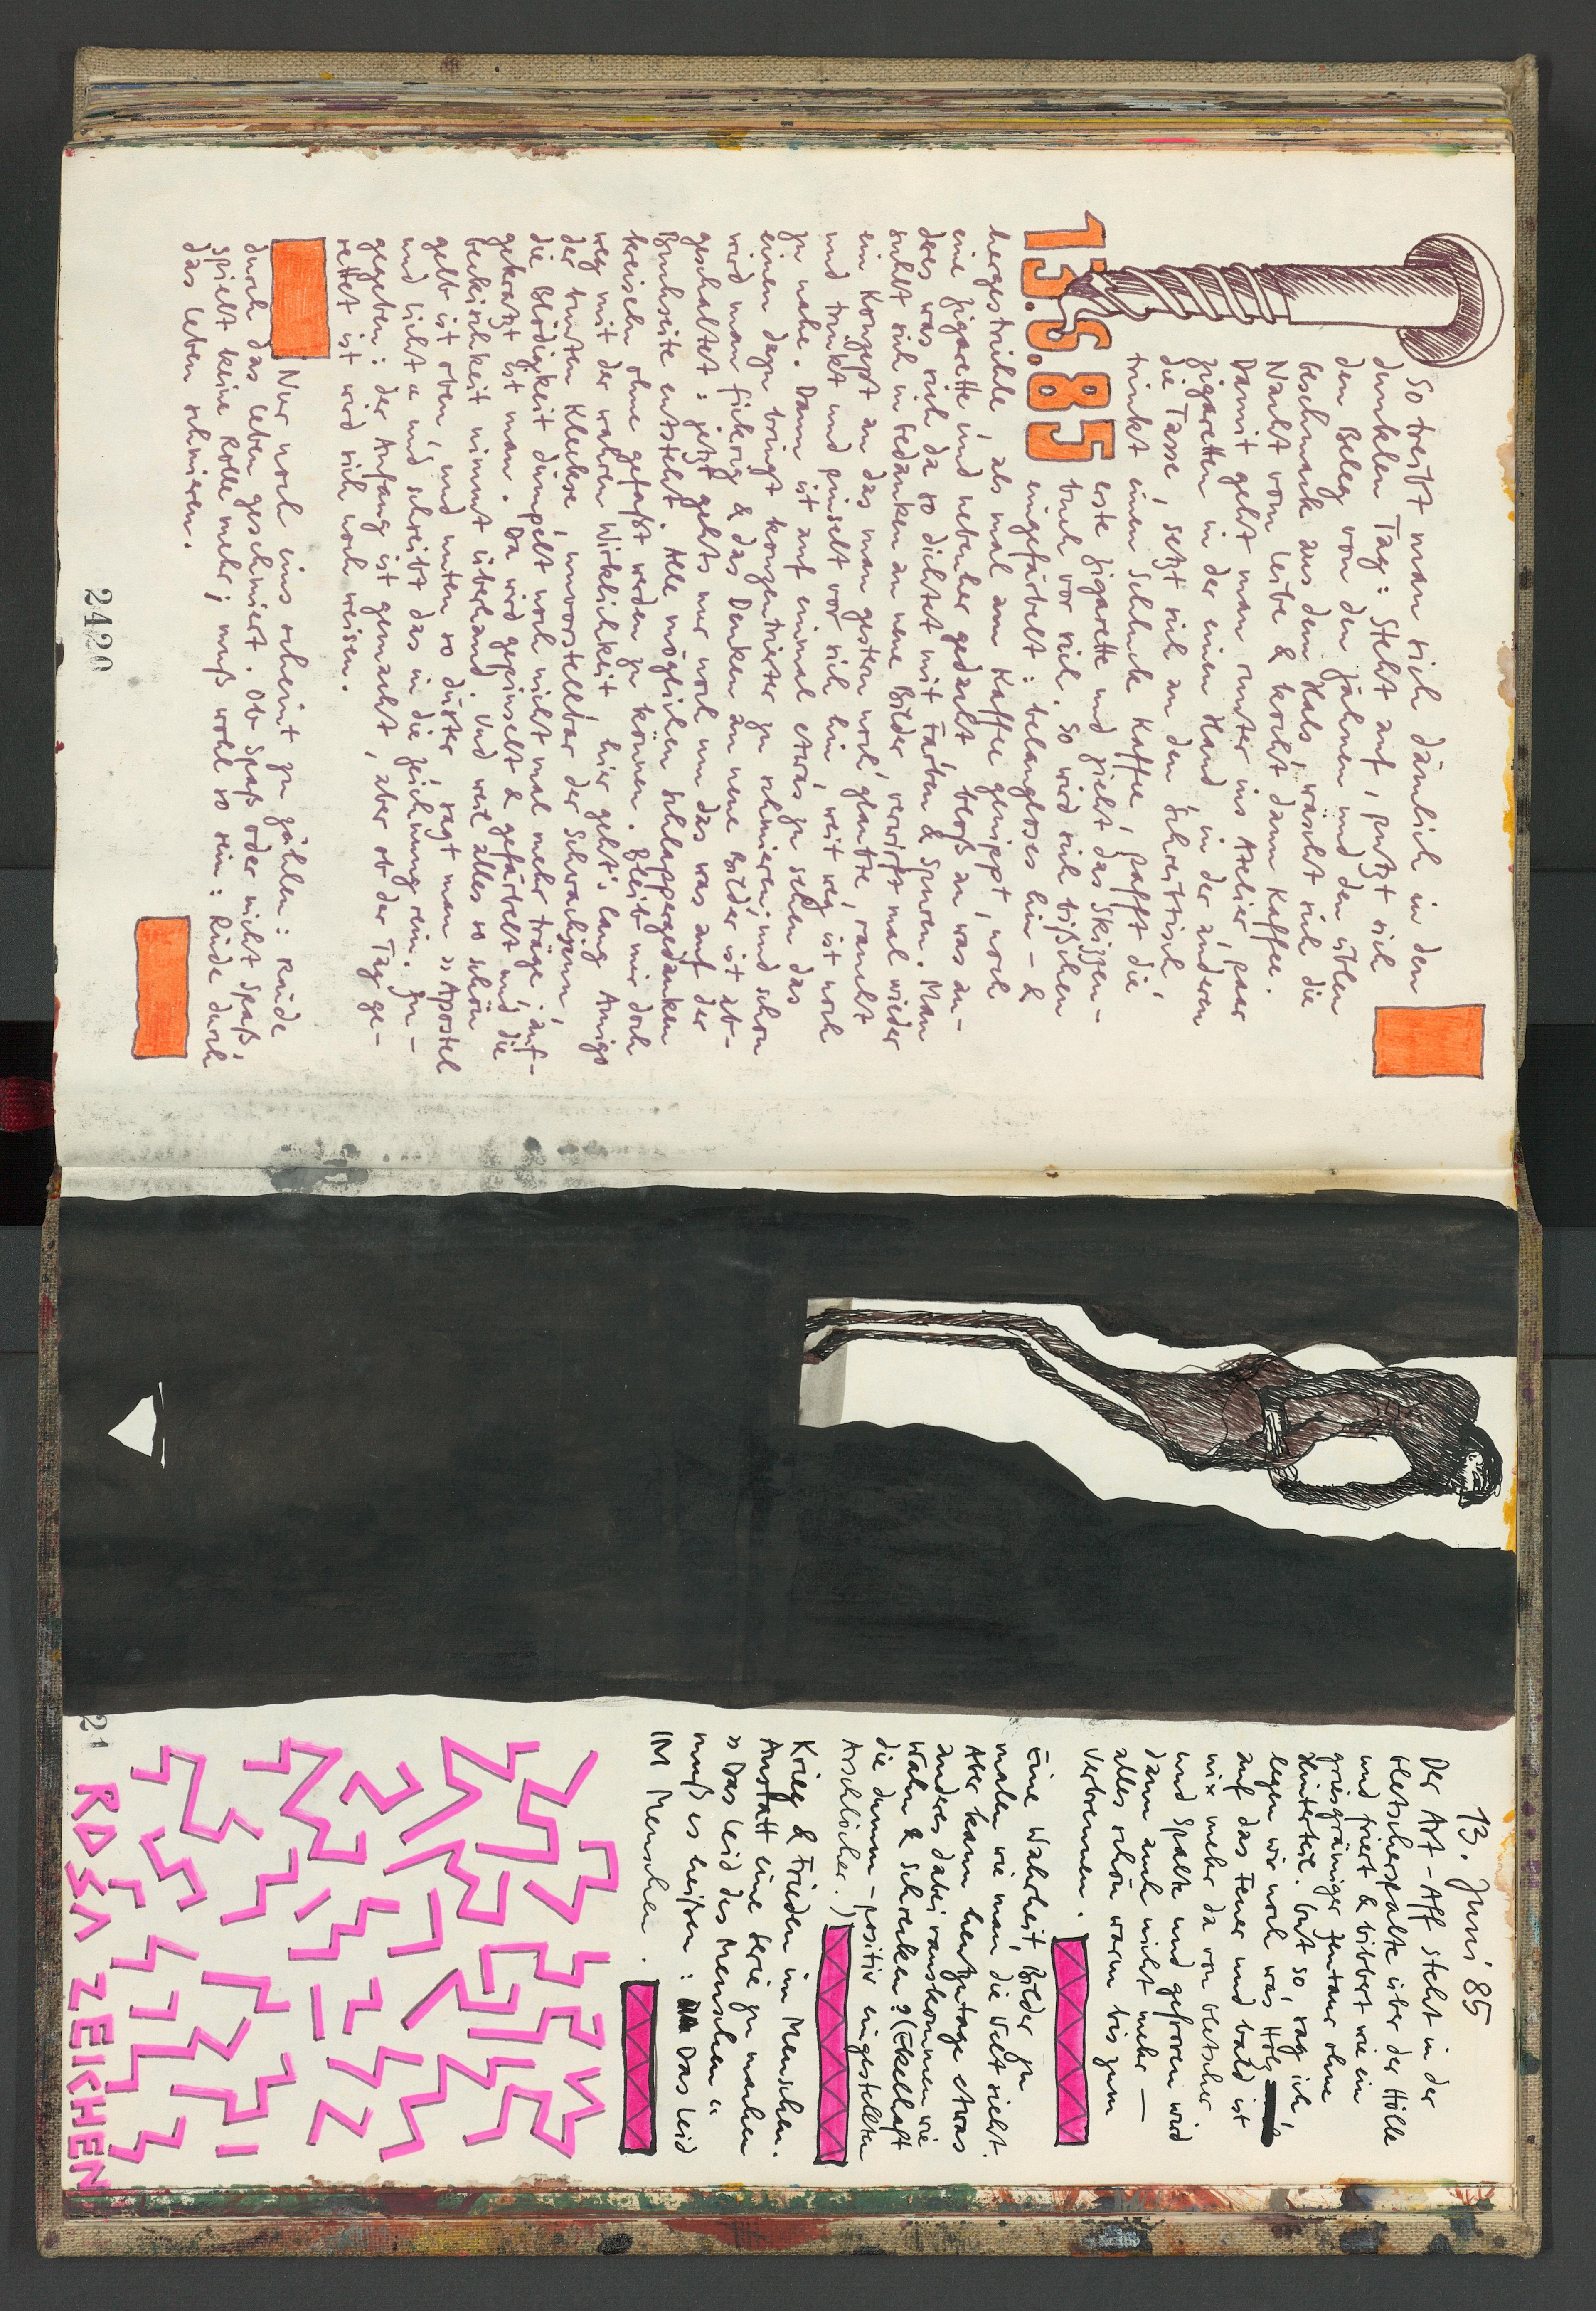 So treibt man sich dämlich in den
dunklen Tag: Steht auf, putzt sich
den Beleg von den Zähnen und den üblen
Geschmack aus dem Hals, wäscht sich die
Nacht vom Leibe & kocht dann Kaffee.
Damit geht man runter ins Atelier, paar
Zigaretten in der einen Hand, in der anderen
die Tasse, setzt sich an den Schreibtisch,
trinkt einen Schluck Kaffee, pafft die
erste Zigarette und zieht das Skizzen-
buch vor sich. So wird sich bißchen
13.6.85
eingefärbelt: belangloses hin- &
hergestrichle, als mal am Kaffee genippt, noch
eine Zigarette und nebenher gedacht, bloß an was an-
deres was sich da so dichtet mit Farben & Spuren. Man
suhlt sich in Gedanken an neue Bilder, verwirft mal wieder
ein Konzept an das man gestern noch glaubte, raucht
und trinkt und pinselt vor sich hin, weit weg ist noch
zu nahe. Dann ist auf einmal etwas zu sehen das
einen dazu bringt konzentrierter zu schmieren, und schon
wird man fickrig & das Denken an neue Bilder ist ab-
geschaltet: jetzt gehts nur noch um das was auf der
Buchseite entsteht. Alle möglichen Schlappergedanken
kreiseln ohne gefaßt werden zu können. Bleibt mir doch
weg mit der wahren Wirklichkeit, hier geht's lang Amigo
der bunten Kleckse, unvorstellbar der Schwachsinn,
die Blödigkeit dümpelt noch nicht mal mehr träge, auf-
gekratzt ist man. Da wird gepinselt & gefärbelt und die
Beckischkeit nimmt überhand. Und weil alles so schön
gelb ist oben, und unten so düster, sagt man »Apostel
und Licht« und schreibt das in die Zeichnung rein. Zu-
gegeben: der Anfang ist gemacht, aber ob der Tag ge-
rettet ist wird sich noch weisen.
Nur noch eins scheint zu zählen: Rüde
durch das Leben geschmiert. Ob Spaß oder nicht Spaß,
spielt keine Rolle mehr; muß wohl so sein: Rüde durch
das Leben schmieren.
2420
13. Juni '85
Der Art-Aff steht in der
Gletscherspalte über der Hölle
und friert & bibbert wie ein
griesgrämiger Zentaur ohne
Hinterteil. Gut so, sag ich,
legen wir noch was Holz
auf das Feuer und bald ist
nix mehr da von Gletscher
und Spalte und gefroren wird
dann auch nicht mehr —
alles schön warm bis zum
Verbrennen.
Eine Wahrheit, Bilder zu
malen wie man die Welt sieht.
Aber kann heutzutage etwas
anderes dabei rauskommen wie
Wahn & Schrecken? (Ekelhaft
die dumm-positiv eingestellten
Arschlöcher.)
Krieg & Frieden im Menschen.
Anstatt eine Serie zu machen
»Das Leid des Menschen«
muß es heißen: Das Leid
IM Menschen.
ROSA ZEICHEN
21